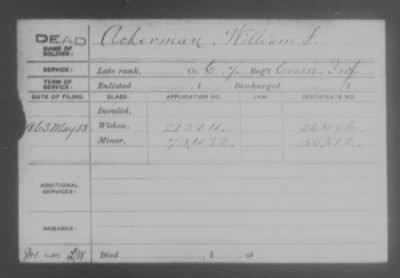 DEAD
NAME OF SOLDIER: Ackerman, William F.
SERVICE: Late rank, Co. C, 7 Reg't Conn. Inf.
TERM OF SERVICE: Enlisted , 1 Discharged , 1
DATE OF FILING. CLASS. APPLICATION NO. LAW. CERTIFICATE NO.
Invalid,
1863 May 13. Widow,
Minor, 73,432
ADDITIONAL SERVICES:
REMARKS:
Died , 1 , at